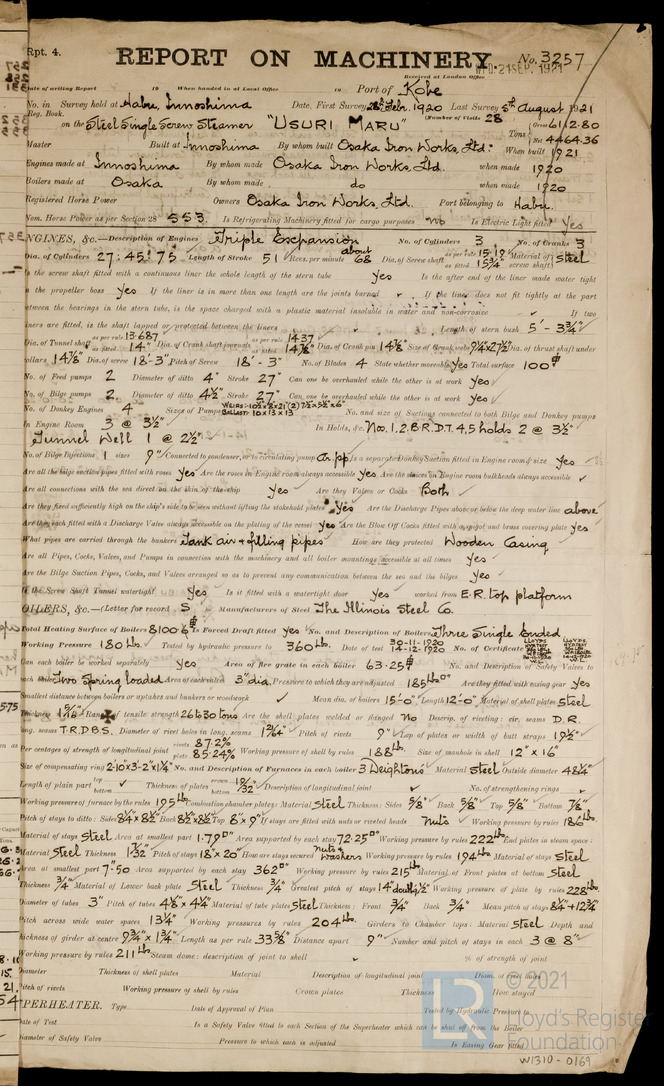 Rpt. 4.
REPORT ON MACHINERY. No. 3257
Received at London Office
WED. 21 SEP. 1921
Date of writing Report 19 When handed in at Local Office 19 Port of Kobe
No. in Survey held at Habu, Innoshima Date, First Survey 28th Febr. 1920 Last Survey 5th August 1921
Reg. Book. (Number of Visits 28
on the Steel Single Screw Steamer "USURI MARU" Tons Gross 6112.80
Net 4464.36
Master Built at Innoshima By whom built Osaka Iron Works, Ltd. When built 1921
Engines made at Innoshima By whom made Osaka Iron Works, Ltd. when made 1920
Boilers made at Osaka By whom made do when made 1920
Registered Horse Power Owners Osaka Iron Works, Ltd. Port belonging to Habu.
Nom. Horse Power as per Section 28 553. Is Refrigerating Machinery fitted for cargo purposes no Is Electric Light fitted Yes
NGINES, &c.—Description of Engines Triple Expansion No. of Cylinders 3 No. of Cranks 3
Dia. of Cylinders 27: 45: 75 Length of Stroke 51 Revs. per minute about 68 Dia. of Screw shaft as per rule 15.19 as fitted 15¾" Material of screw shaft steel
Is the screw shaft fitted with a continuous liner the whole length of the stern tube yes Is the after end of the liner made water tight
in the propeller boss yes If the liner is in more than one length are the joints burned If the liner does not fit tightly at the part
between the bearings in the stern tube, is the space charged with a plastic material insoluble in water and non-corrosive If two
liners are fitted, is the shaft lapped or protected between the liners Length of stern bush 5'-3¾"
Dia. of Tunnel shaft as per rule 13.687 as fitted 14" Dia. of Crank shaft journals as per rule 14.37 as fitted 14⅞" Dia. of Crank pin 14⅞" Size of Crank webs 9¼x27½ Dia. of thrust shaft under
collars 14⅞" Dia. of screw 18'-3" Pitch of Screw 18'-3" No. of Blades 4 State whether moveable Yes Total surface 100
No. of Feed pumps 2 Diameter of ditto 4" Stroke 27" Can one be overhauled while the other is at work yes
No. of Bilge pumps 2 Diameter of ditto 4½" Stroke 27" Can one be overhauled while the other is at work yes
No. of Donkey Engines 4 Sizes of Pumps Ballast: 10x13x13 No. and size of Suctions connected to both Bilge and Donkey pumps
In Engine Room 3 @ 3½" In Holds, &c. Nos. 1. 2. B.R. D.T. 4.5 holds 2 @ 3½"
Tunnel Well 1 @ 2½"
No. of Bilge Injections 1 sizes 9" Connected to condenser, or to circulating pump Cr. pp. Is a separate Donkey Suction fitted in Engine room & size yes
Are all the bilge suction pipes fitted with roses yes Are the roses in Engine room always accessible yes Are the sluices on Engine room bulkheads always accessible
Are all connections with the sea direct on the skin of the ship yes Are they Valves or Cocks Both
Are they fixed sufficiently high on the ship's side to be seen without lifting the stokehold plates yes Are the Discharge Pipes above or below the deep water line above
Are they each fitted with a Discharge Valve always accessible on the plating of the vessel yes Are the Blow Off Cocks fitted with a spigot and brass covering plate yes
What pipes are carried through the bunkers Tank air & filling pipes How are they protected Wooden Casing
Are all Pipes, Cocks, Valves, and Pumps in connection with the machinery and all boiler mountings accessible at all times yes
Are the Bilge Suction Pipes, Cocks, and Valves arranged so as to prevent any communication between the sea and the bilges yes
Is the Screw Shaft Tunnel watertight Yes Is it fitted with a watertight door yes worked from E.R. top platform
OILERS, &c.—(Letter for record S) Manufacturers of Steel The Illinois Steel Co.
Total Heating Surface of Boilers 8100.6 Is Forced Draft fitted yes No. and Description of Boilers Three Single Ended
Working Pressure 180 lbs. Tested by hydraulic pressure to 360 lbs. Date of test 30-11-1920 14-12-1920 No. of Certificate
Can each boiler be worked separately yes Area of fire grate in each boiler 63.25 No. and Description of Safety Valves to
each boiler Two Spring loaded Area of each valve 3"dia. Pressure to which they are adjusted 185 lbs Are they fitted with easing gear yes
Smallest distance between boilers or uptakes and bunkers or woodwork Mean dia. of boilers 15'-0" Length 12'-0" Material of shell plates steel
Thickness Range of tensile strength 26 to 30 tons Are the shell plates welded or flanged no Descrip. of riveting: cir. seams D.R.
long. seams T.R.D.B.S. Diameter of rivet holes in long. seams Pitch of rivets 9" Lap of plates or width of butt straps 19½"
Per centages of strength of longitudinal joint rivets 87.2% plate 85.24% Working pressure of shell by rules 188 lbs. Size of manhole in shell 12" x 16"
Size of compensating ring 2'-10x3'-2"x1¼" No. and Description of Furnaces in each boiler 3 Deightons Material steel Outside diameter 48¼"
Length of plain part top bottom Thickness of plates crown bottom 19/32" Description of longitudinal joint No. of strengthening rings
Working pressure of furnace by the rules 195 lbs Combustion chamber plates: Material Steel Thickness: Sides ⅝" Back ⅝" Top ⅝" Bottom ⅞"
Pitch of stays to ditto: Sides 8¼x8½" Back 8½"x8½" Top 8"x9" If stays are fitted with nuts or riveted heads nuts Working pressure by rules 186 lbs.
Material of stays Steel Area at smallest part 1.79 Area supported by each stay 72.25 Working pressure by rules 222 lbs End plates in steam space:
Material Steel Thickness 1 7/32" Pitch of stays 18"x20" How are stays secured nuts & washers Working pressure by rules 194 lbs Material of stays Steel
Area at smallest part 7.50 Area supported by each stay 362 Working pressure by rules 215 lbs Material of Front plates at bottom Steel
Thickness ¾" Material of Lower back plate Steel Thickness ¾" Greatest pitch of stays Working pressure of plate by rules 228 lbs.
Diameter of tubes 3" Pitch of tubes 4⅛"x4¼" Material of tube plates Steel Thickness: Front ¾" Back ¾" Mean pitch of stays
Pitch across wide water spaces 13¼" Working pressures by rules 204 lbs. Girders to Chamber tops: Material Steel Depth and
thickness of girder at centre 9¾"x1¾" Length as per rule 33⅝" Distance apart 9" Number and pitch of stays in each 3 @ 8"
Working pressure by rules 211 lbs Steam dome: description of joint to shell % of strength of joint
Diameter Thickness of shell plates Material Description of longitudinal joint Diam. of rivet holes
Pitch of rivets Working pressure of shell by rules Crown plates Thickness How stayed
UPERHEATER. Type Date of Approval of Plan Tested by Hydraulic Pressure to
Date of Test Is a Safety Valve fitted to each Section of the Superheater which can be shut off from the Boiler
Diameter of Safety Valve Pressure to which each is adjusted Is Easing Gear fitted
© 2021
Lloyd's Register
Foundation
W1310-0169